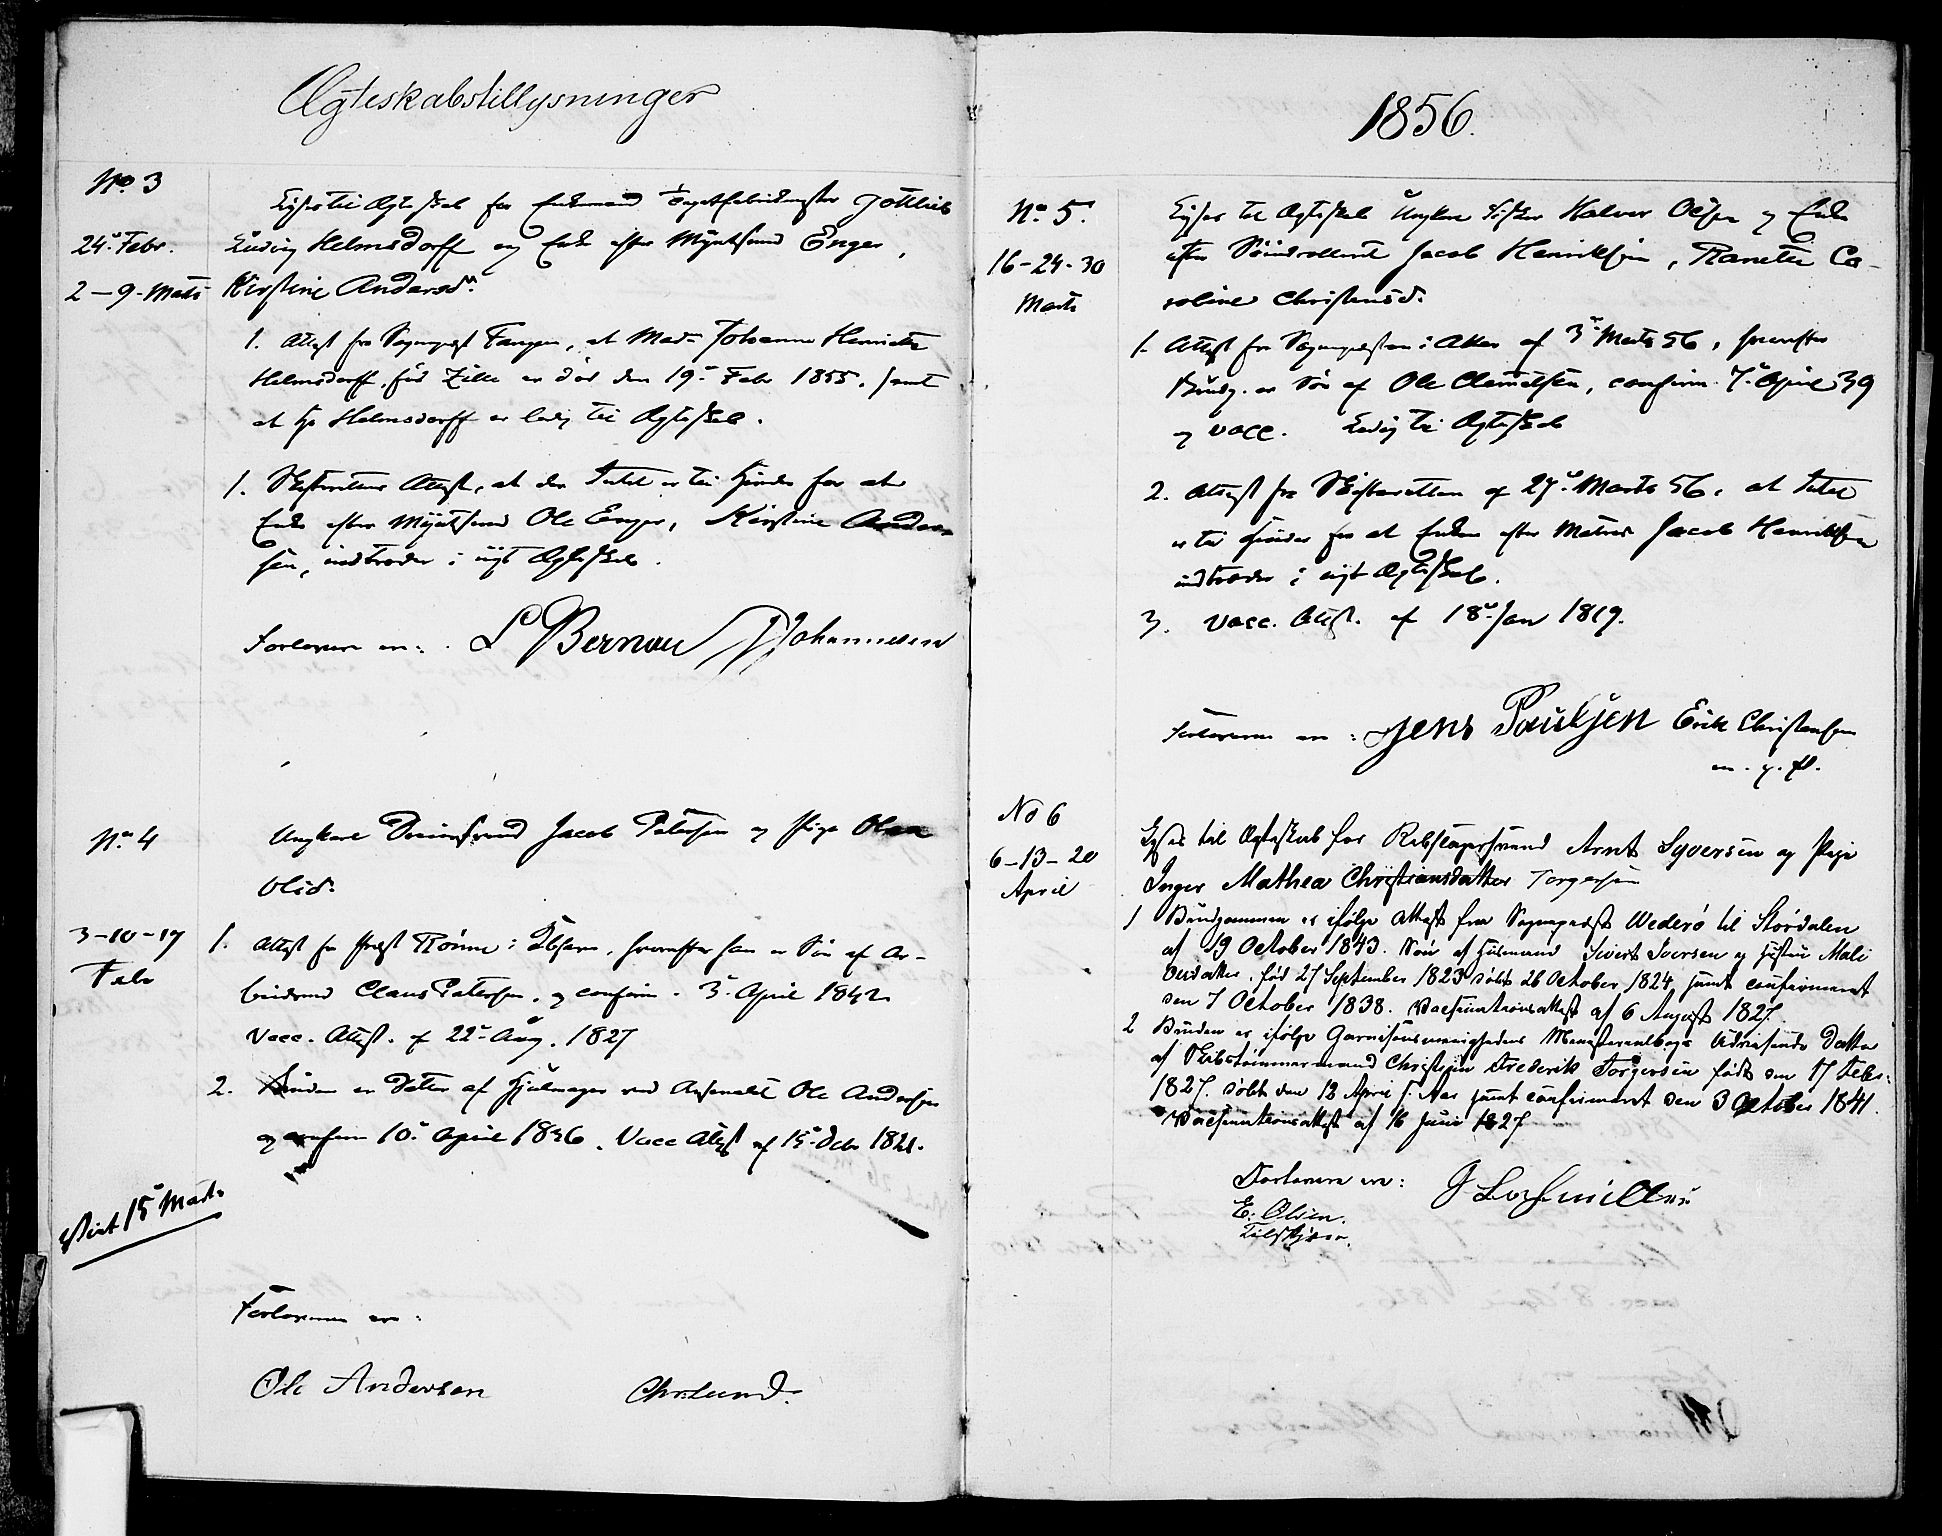 Ægteskabstillysninger
No 3
24de Febr.
2 - 9 - Marts
Lyses til Ægteskab for Enkemand Gottlieb
Ludvig Helmsdorff og Enke efter Myntsvend Enger,
Kirstine Andersdr.
1. Attest fra Sognepræst Fangen, at Mad. Johanne Henriette
Helmsdorff, før Zille er død den 19de Febr 1855, samt
at Hr Helmsdorff er ledig til Ægteskab.
1. Skifterettens Attest, at der Intet er til Hinder for at
Enke efter Myntsvend Ole Enger, Kirstine Ander-
sen, indtræder i nyt Ægteskab.
Forlovere ere: L Bernau Johannesen
No. 4
3-10-17
Febr
Ungkarl Jacob Petersen og Pige Olea
Olsd.
1. Attest fra Præst Rønne i , hvorefter han er Søn af Ar-
beidsmd Claus Petersen, og confirm. 3. April 1842
Vacc. Attest. af 22de Aug. 1827
2. Bruden er Datter af Hjulmager ved Arsenalet Ole Andersen
og confirm 10de April 1836. Vacc Attest af 15de Octr 1821.
Viet 15de Marts
Forloverne ere:
Ole Andersen Chr. Lund.
1856.
No. 5.
16-24-30
Marts
Lyses til Ægteskab Ungkar Fisker Halvor Olsen og Enke
efter Jacob Henriksen, Ranette Ca-
roline Christensd.
1. Attest fra Sognepræsten i Aker af 3de Marts 56, hvorefter
Brudg. er Søn af Ole , confirm. 7de April 39
og vacc. Ledig til Ægteskab
2. Attest fra Skifteretten af 27de Marts 56, at Intet
er til Hinder for at Enken efter Matros Jacob Henriksen
indtræder i nyt Ægteskab.
3. Vacc. Attest. af 18de Jan 1819.
Forloverne ere: Jens Paulsen Erik Christensen
m. p. P.
No 6
6-13-20
April
Lyses til Ægteskab for Rebslagersvend Arnt Syversen og Pige
Inger Mathea Christiansdatter Torgersen
1 Brudgommen er ifølge Attest fra Sognepræst Wederø til Stordalen
af 19 October 1843. Søn af Huusmand Sivert Iversen og Hustru Mali
Olsdatter, født 27 September 1823 døbt 26 October 1824, samt confirmeret
den 7 October 1838. Vaccinationsattest af 6 August 1827.
2 Bruden er ifølge Garnisonsmenighedens Ministerialbogs Udvisende Datter
af Skibstømmermand Christian Frederik Torgersen født den 17 Febr.
1827. døbt den 12 April s. Aar samt confirmeret den 3 October 1841.
Vaccinationsattest af 16 Juni 1827
Forlovere ere:
E. Olsen.